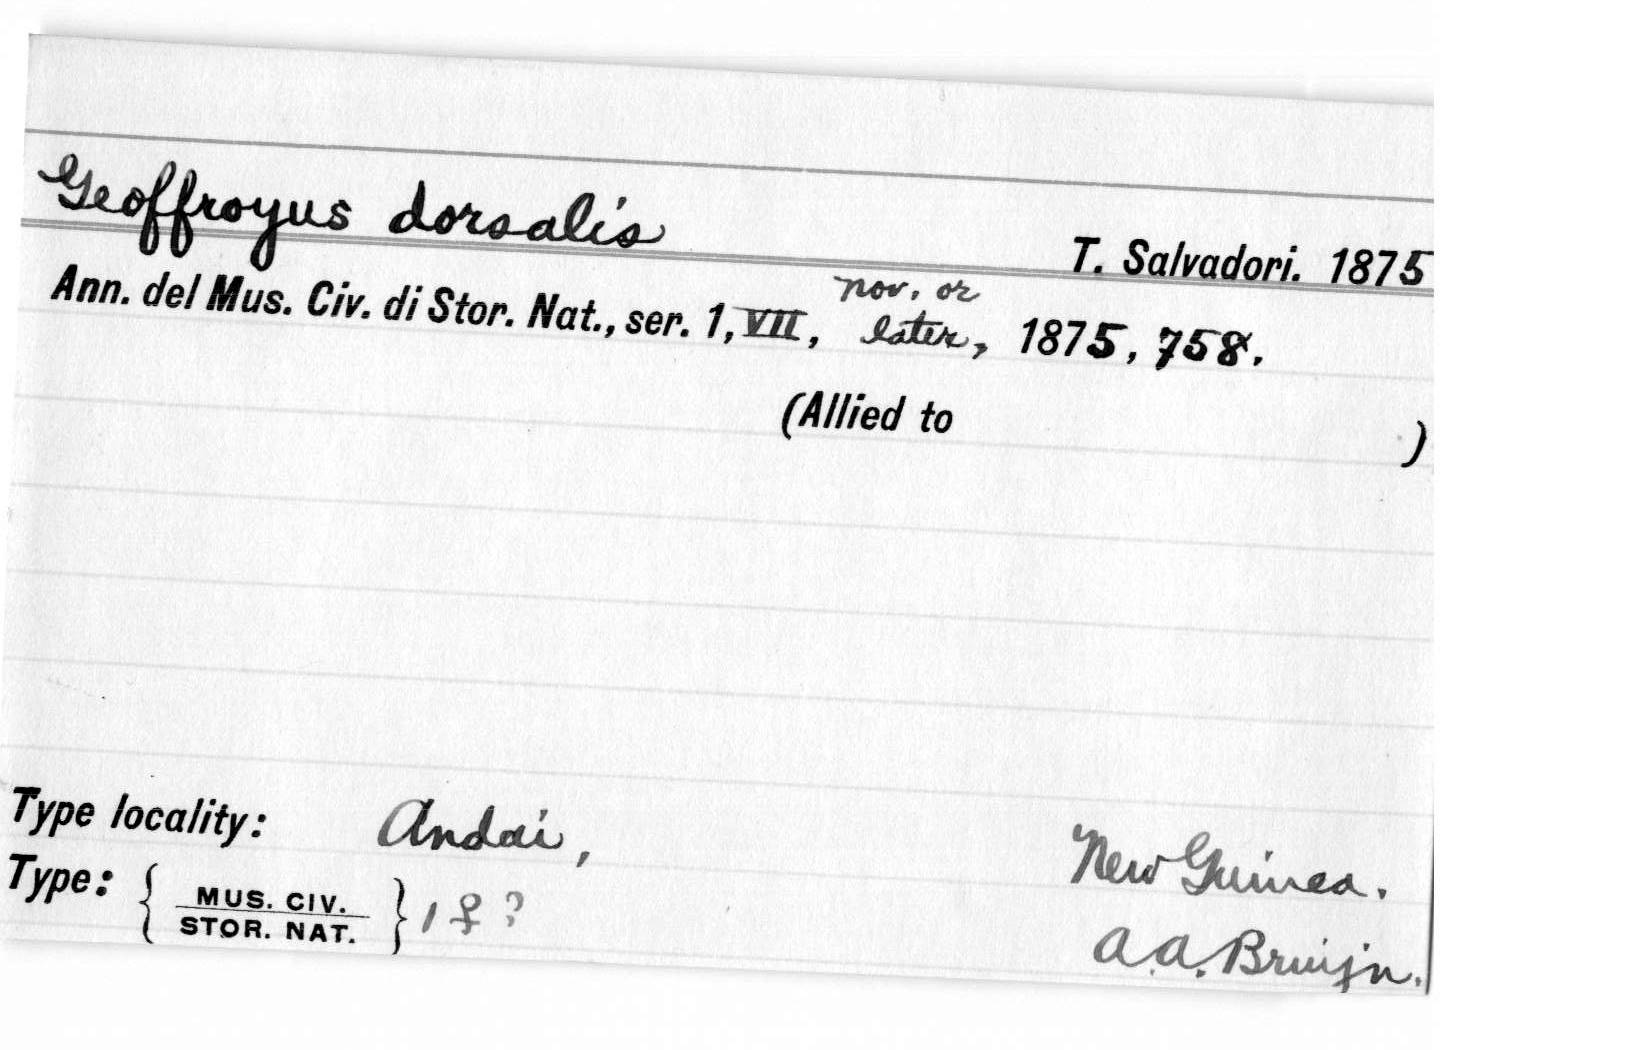 Geoffroyus dorsalis
T. Salvadori. 1875
nov. or
Ann. del Mus. Civ. di Stor. Nat., ser. 1, VII, later, 1875, 758.
(Allied to )
Type locality: Andai, New Guinea.
Type: { MUS. CIV. STOR. NAT. } 1 ♀ ? A.A. Bruijn.